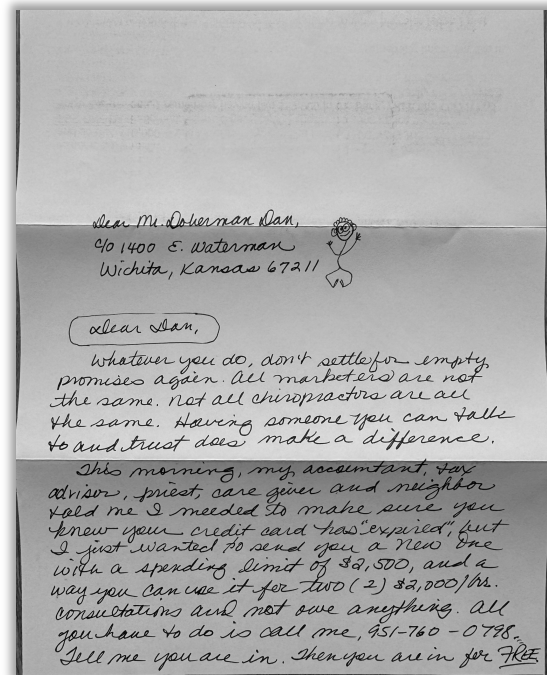 Dear Mr. Doberman Dan,
c/o 1400 E. Waterman
Wichita, Kansas 67211
Dear Dan,
Whatever you do, don't settle for empty
promises again. All marketers are not
the same. Not all chiropractors are all
the same. Having someone you can talk
to and trust does make a difference.
This morning, my accountant, tax
advisor, priest, care giver and neighbor
told me I needed to make sure you
knew your credit card has "expired", but
I just wanted to send you a new one
with a spending limit of $2,500, and a
way you can use it for two (2) $2,000/hr.
consultations and not owe anything. All
you have to do is call me, 951-760-0798...
Tell me you are in. Then you are in for FREE